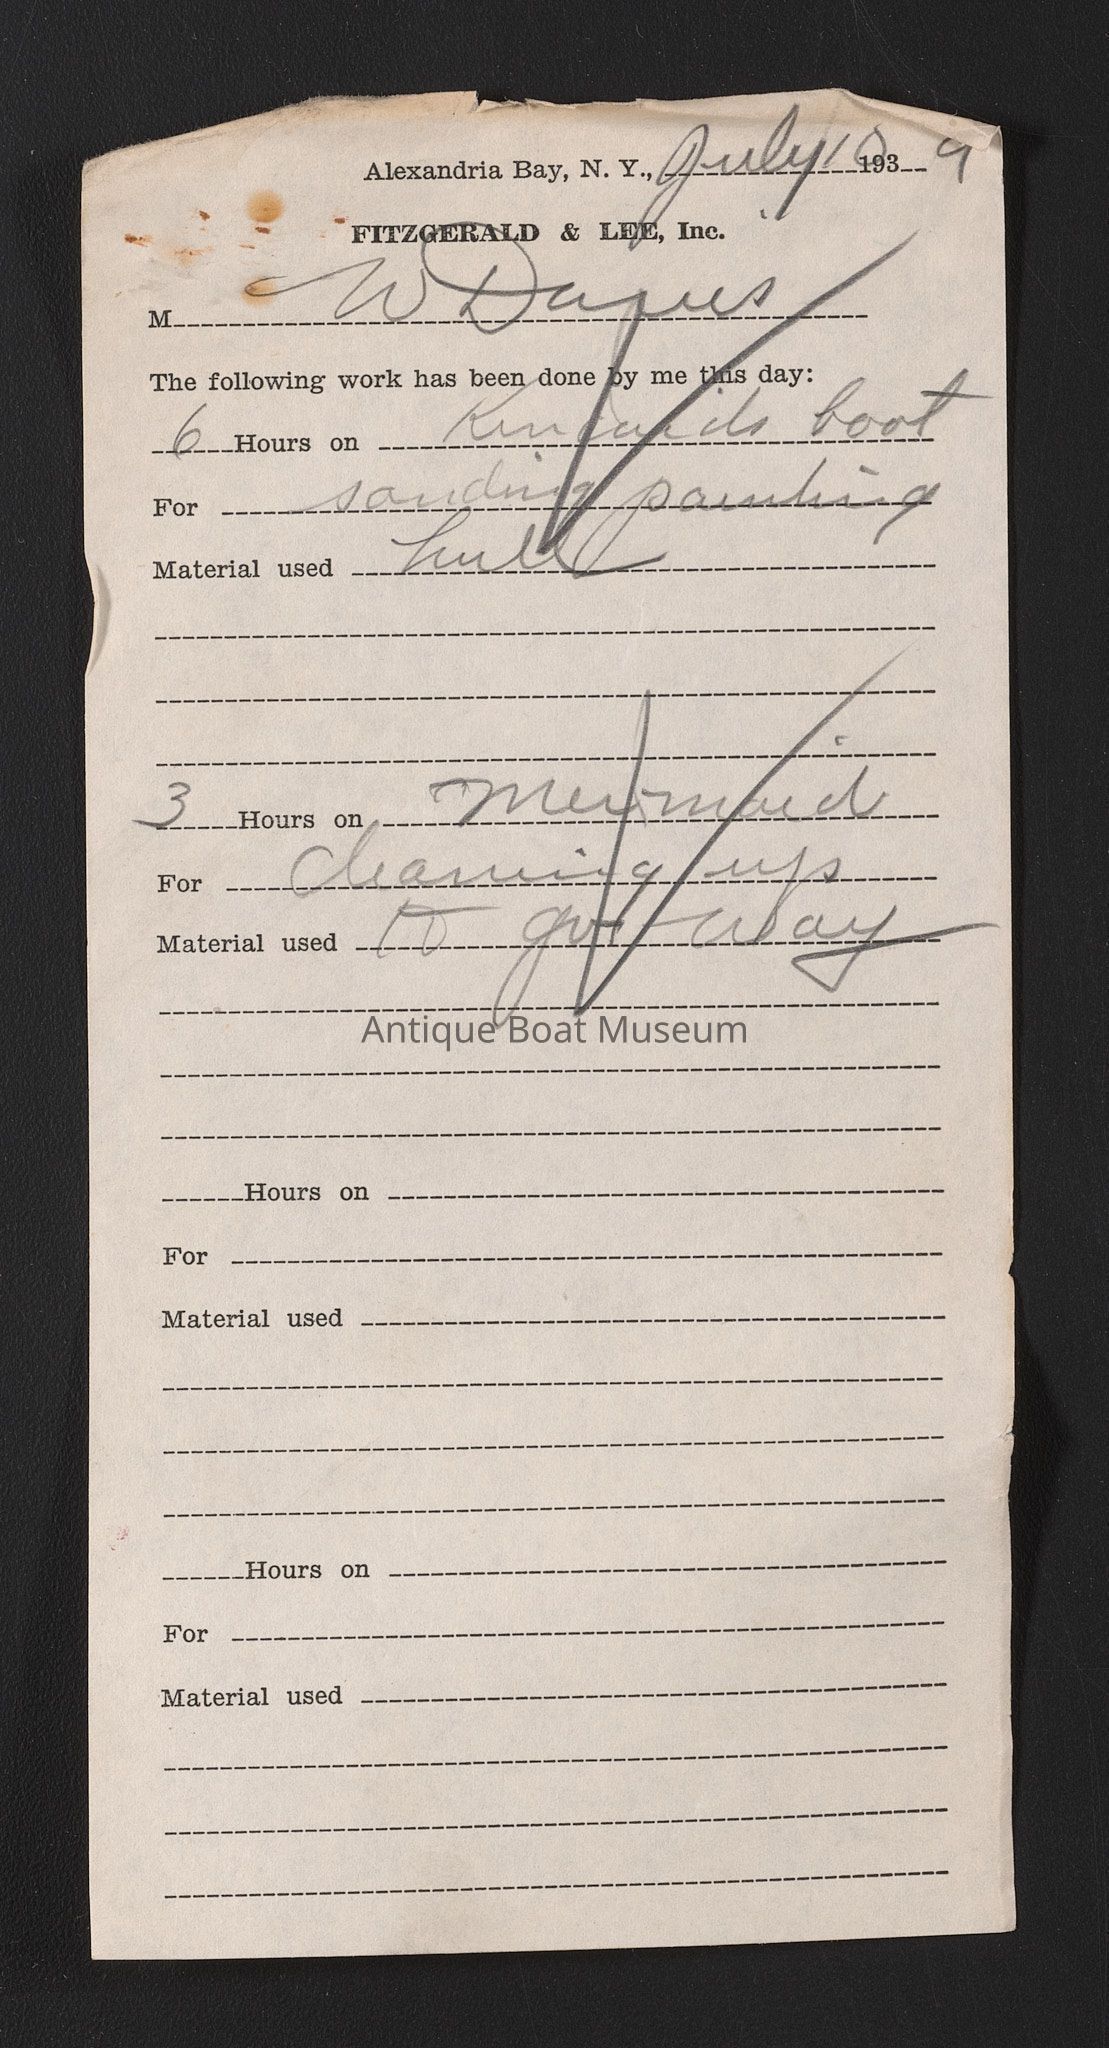 Alexandria Bay, N. Y., July 10 1939
FITZGERALD & LEE, Inc.
M W Davies
The following work has been done by me this day:
6 Hours on boat
For sanding painting
Material used hull
3 Hours on Mermaid
For Cleaning ups
Material used to go way
Antique Boat Museum
Hours on
For
Material used
Hours on
For
Material used